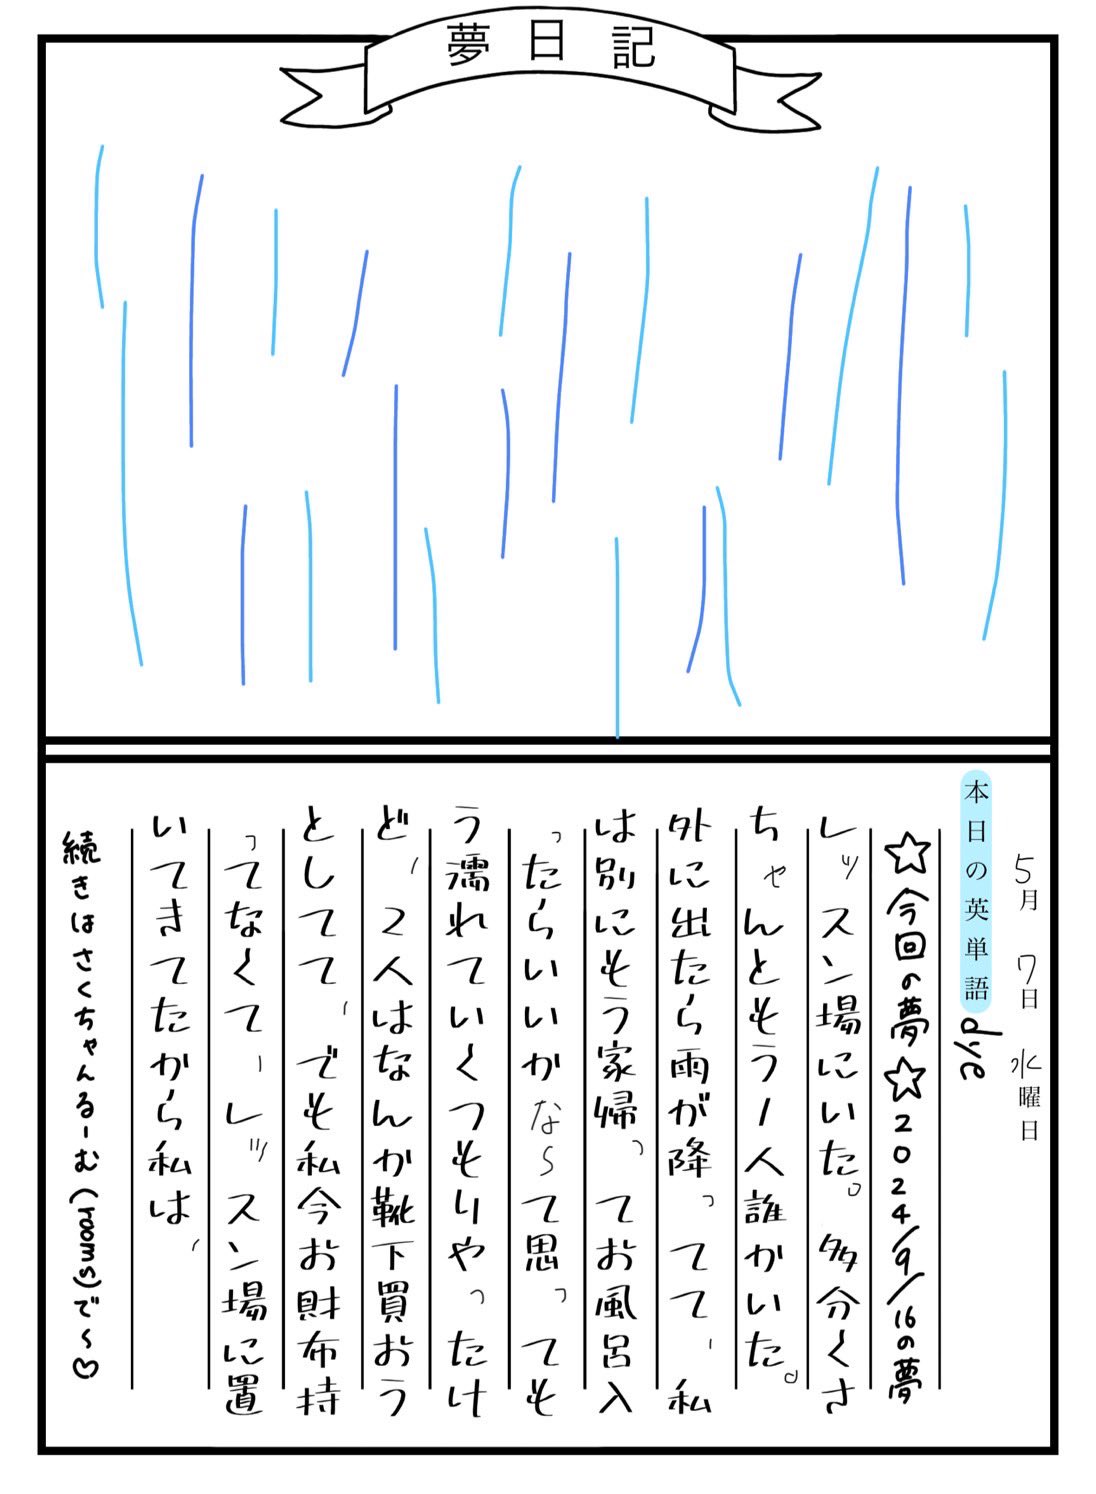 夢日記
5月 7日 水曜日
本日の英単語 dye
☆今回の夢☆2024/9/16の夢
レッスン場にいた。多分くさ
ちゃんともう1人誰かいた。
外に出たら雨が降ってて、私
は別にもう家帰ってお風呂入
ったらいいかな〜て思っても
う濡れていくつもりやったけ
ど、2人はなんか靴下買おう
としてて、でも私今お財布持
ってなくて、レッスン場に置
いてきてたから私は、
続きはさくちゃんるーむ(rooms)で〜♡